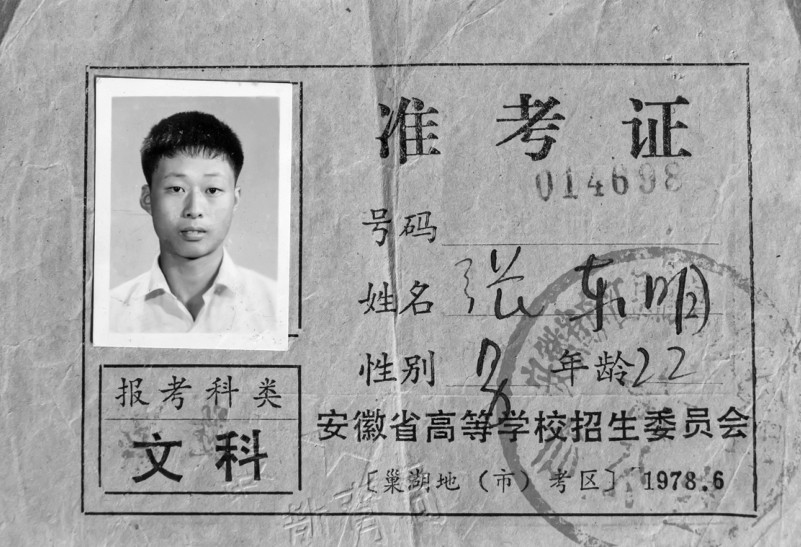 准考证
014698
号码
姓名 张东明
性别 男 年龄22
报考科类
文科
安徽省高等学校招生委员会
〔巢湖地（市）考区〕 1978.6